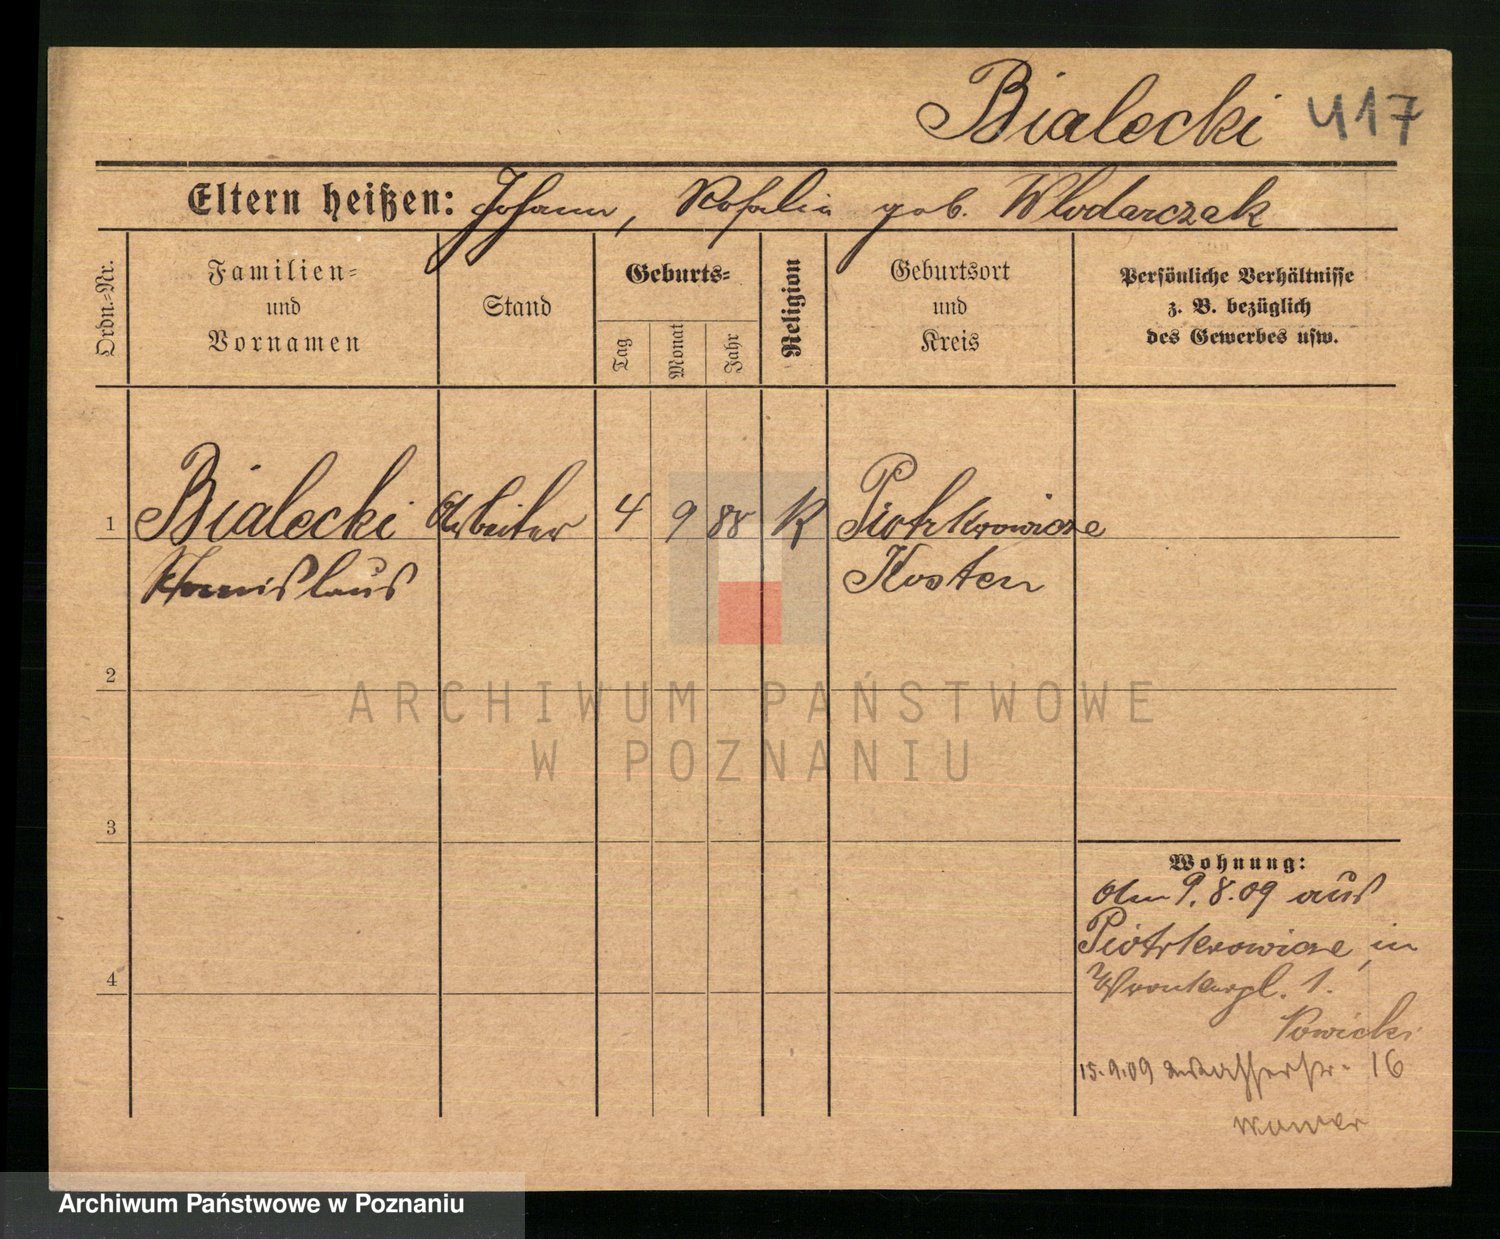 Bialecki 417
Eltern heißen: Johann, Rosalia geb. Wlodarczak
Ordn.-Nr.
Familien-
und
Vornamen
Stand
Geburts-
Tag
Monat
Jahr
Religion
Geburtsort
und
Kreis
Persönliche Verhältnisse
z. B. bezüglich
des Gewerbes usw.
1 Bialecki Arbeiter 4 9 88 K Piotrkowicze
Stanislaus Kosten
2
ARCHIWUM PAŃSTWOWE
W POZNANIU
3
Wohnung:
Am 9.8.09 aus
Piotrkowicze, in
4
Wronkerpl. 1.
Nowicki
15.9.09 Wasserstr. 16
Archiwum Państwowe w Poznaniu